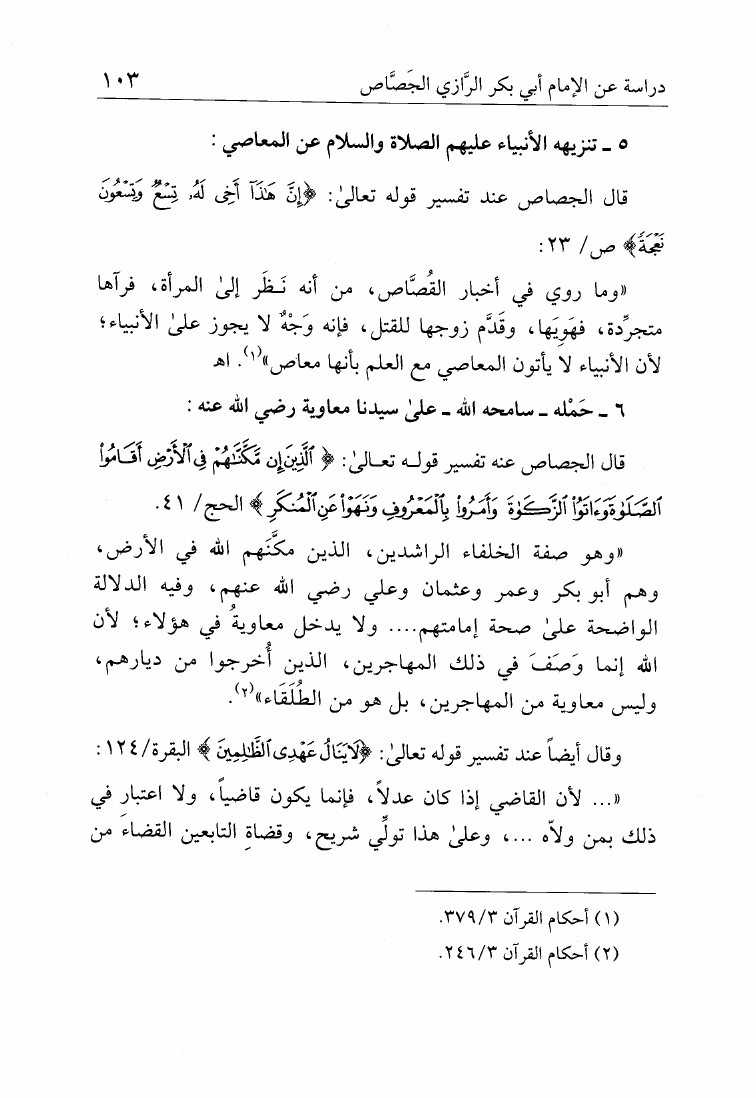 دراسة عن الإمام أبي بكر الرَّازي الجَصَّاص ١٠٣
٥ ـ تنزيهه الأنبياء عليهم الصلاة والسلام عن المعاصي :
قال الجصاص عند تفسير قوله تعالىٰ: ﴿إِنَّ هَٰذَآ أَخِى لَهُۥ تِسْعٌ وَتِسْعُونَ
نَعْجَةً﴾ ص/ ٢٣:
«وما روي في أخبار القُصَّاص، من أنه نَظَر إلىٰ المرأة، فرآها
متجرِّدة، فهَوِيَها، وقَدَّم زوجها للقتل، فإنه وَجْهٌ لا يجوز علىٰ الأنبياء؛
لأن الأنبياء لا يأتون المعاصي مع العلم بأنها معاص»(١). اهـ
٦ ـ حَمْله ـ سامحه الله ـ علىٰ سيدنا معاوية رضي الله عنه :
قال الجصاص عنه تفسير قولـه تعـالىٰ: ﴿ ٱلَّذِينَ إِن مَّكَّنَّٰهُمْ فِى ٱلْأَرْضِ أَقَامُوا۟
ٱلصَّلَوٰةَ وَءَاتَوُا۟ ٱلزَّكَوٰةَ وَأَمَرُوا۟ بِٱلْمَعْرُوفِ وَنَهَوْا۟ عَنِ ٱلْمُنكَرِ ﴾ الحج/ ٤١.
«وهو صفة الخلفاء الراشدين، الذين مكَّنَهم الله في الأرض،
وهم أبو بكر وعمر وعثمان وعلي رضي الله عنهم، وفيه الدلالة
الواضحة علىٰ صحة إمامتهم.... ولا يدخل معاويةُ في هؤلاء؛ لأن
الله إنما وَصَفَ في ذلك المهاجرين، الذين أُخرجوا من ديارهم،
وليس معاوية من المهاجرين، بل هو من الطُلَقَاء»(٢).
وقال أيضاً عند تفسير قوله تعالىٰ: ﴿لَا يَنَالُ عَهْدِى ٱلظَّٰلِمِينَ ﴾ البقرة/١٢٤ :
«... لأن القاضي إذا كان عدلاً، فإنما يكون قاضياً، ولا اعتبار في
ذلك بمن ولاَّه ...، وعلىٰ هذا تولِّي شريح، وقضاةِ التابعين القضاءَ من
(١) أحكام القرآن ٣٧٩/٣.
(٢) أحكام القرآن ٢٤٦/٣.